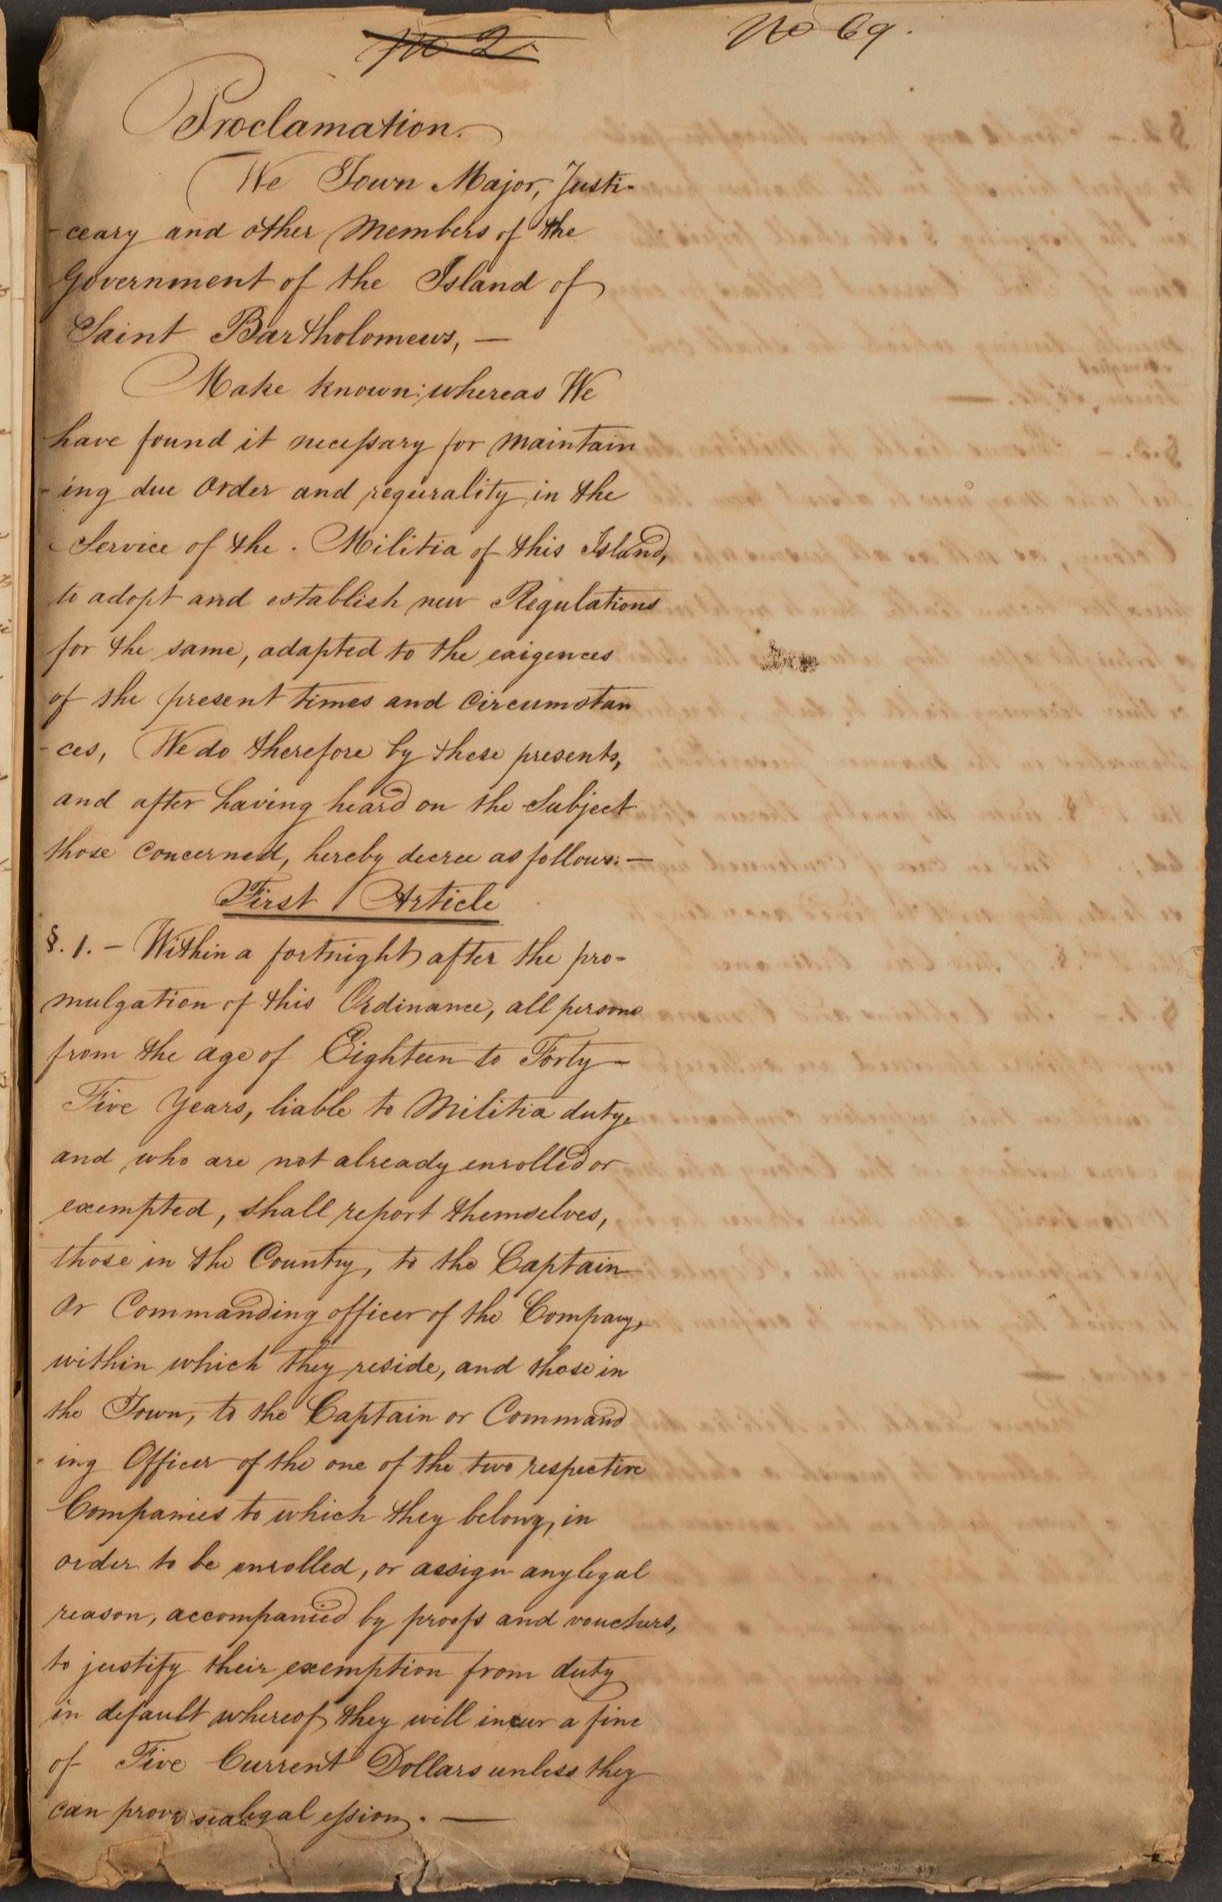 No 2.
No 69.
Proclamation.
We Town Major, Justi-
-ceary and other Members of the
Government of the Island of
Saint Bartholomews, —
Make known: whereas We
have found it necessary for maintain
-ing due Order and regurality in the
Service of the . Militia of this Island,
to adopt and establish new Regulations
for the same, adapted to the exigences
of the present times and Circumstan
-ces, We do therefore by these presents,
and after having heard on the Subject
those Concerned, hereby decree as follows: —
First Article
§. 1. — Within a fortnight after the pro-
mulgation of this Ordinance, all persons
from the age of Eighteen to Forty
Five Years, liable to Militia duty,
and who are not already enrolled or
exempted, shall report themselves,
those in the Country, to the Captain
Or Commanding officer of the Company,
within which they reside, and those in
the Town, to the Captain or Command
-ing Officer of the one of the two respective
Companies to which they belong, in
order to be enrolled, or assign any legal
reason, accompanied by proofs and vouchers,
to justify their exemption from duty
in default whereof they will incur a fine
of Five Current Dollars unless they
can prove legal . —